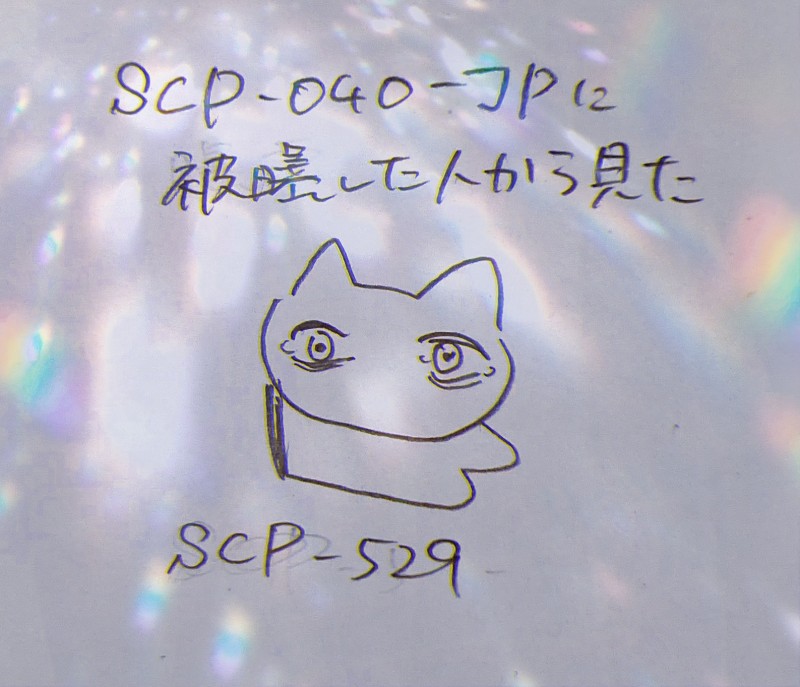 SCP-040-JPに
被曝した人から見た
SCP-529